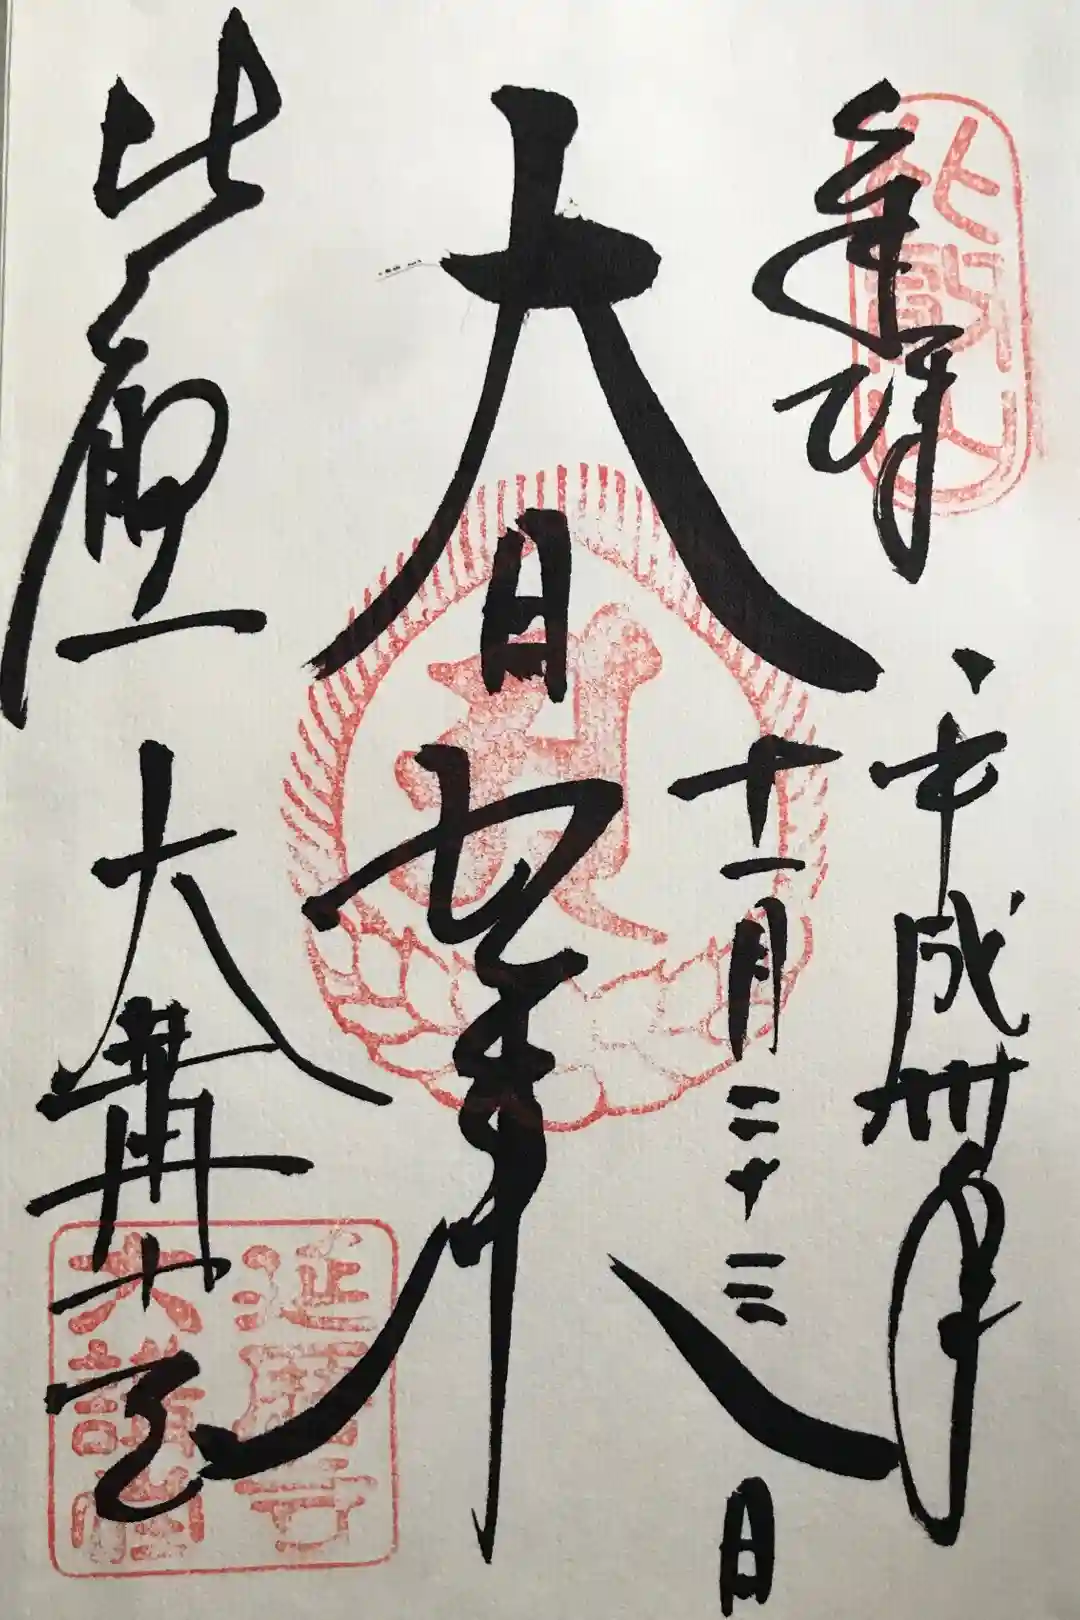 奉拝
比叡山
平成卅年
十一月二十三日
大日如来
比叡山
大講堂
延暦寺
大講堂